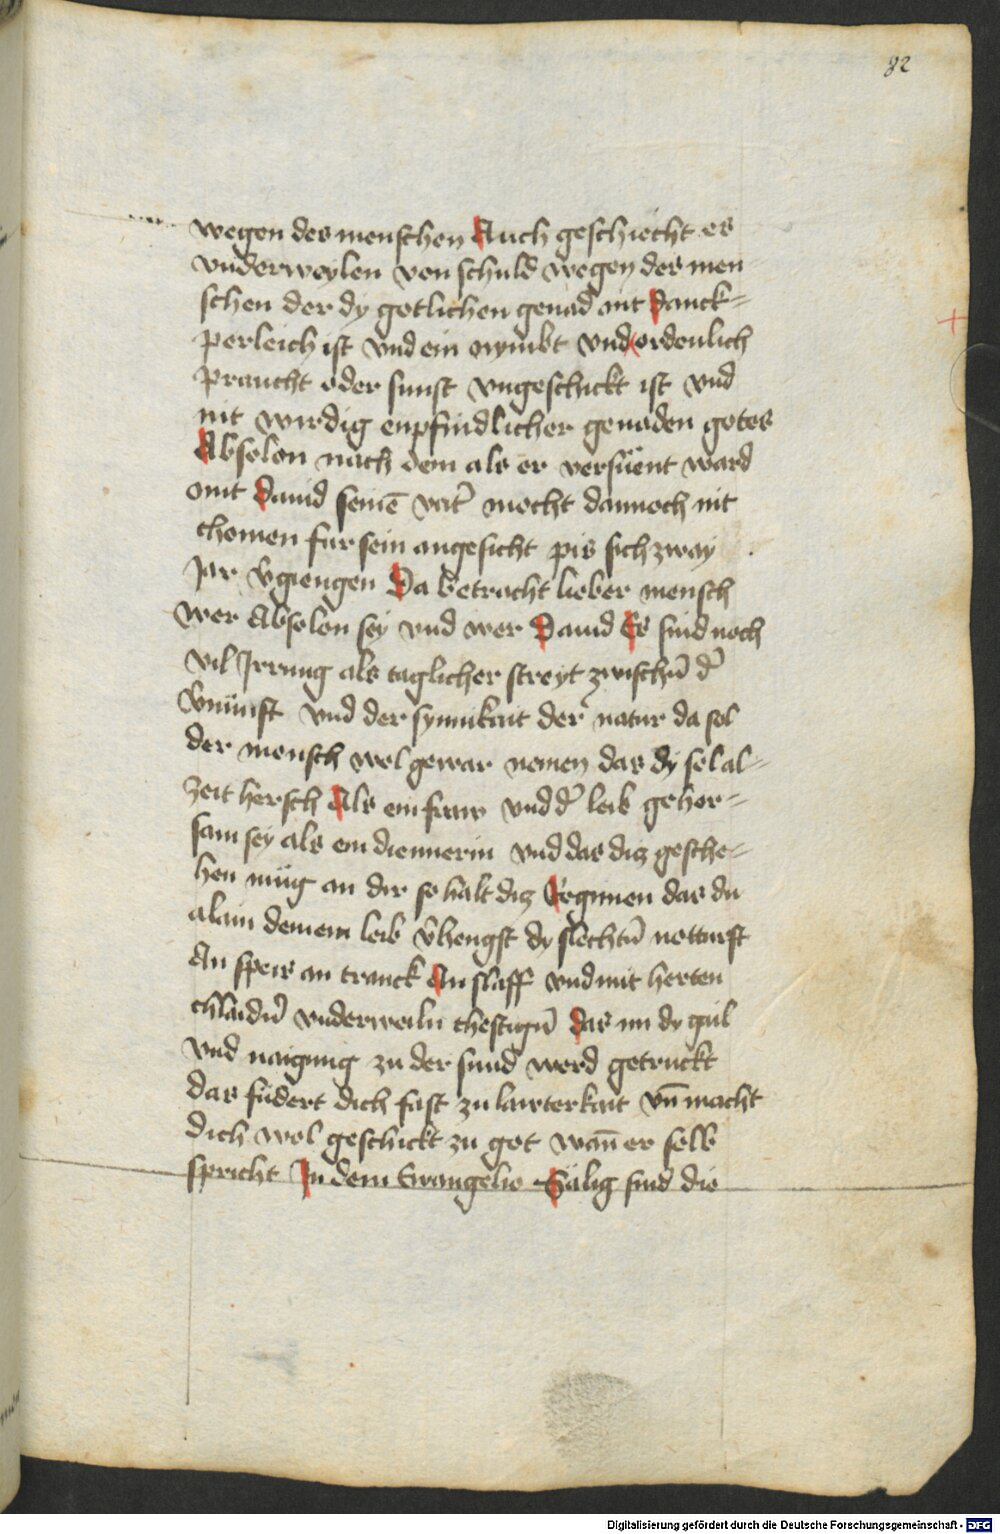 82
wegen des menschen Auch geschiecht es
vnderweylen von schuld wegen des men
schen der dy gotlichen genad nit danck-
perleich ist vnd ein nymbt vnd ordenlich
praucht oder sunst vngeschickt ist vnd
nit wirdig enpfindlicher genaden gotes
Absolon nach dem als er versüent ward
mit dauid seinē vat̄ mocht dannoch nit
chomen fur sein angesicht pis sich zway
Jar v̄giengen Da betracht lieber mensch
wer Absolon sey vnd wer Dauid Es sind noch
vil Jrrung als taglicher streyt zwischn̄ d̄
v̄nünfft vnd der synnikait der natur da sol
der mensch wol gewar nemen das dy sel al-
zeit hersch Als ein fraw vnd d̄ leib gehor-
sam sey als ein diennerin vnd das diz gesche-
hen müg an dir so halt diz Regimen das du
alain deinem leib v̄hengst dy slechtn̄ notturft
An speis an tranck An slaff vnd mit herten
chlaidn̄ vnderweiln chestign̄ das im dy gail
vnd naigung zu der sund werd getruckt
das füdert dich fast zu lauterkait vn̄ macht
dich wol geschickt zu got wan̄ er selb
spricht Jn dem Ewangelio Sälig sind die
Digitalisierung gefördert durch die Deutsche Forschungsgemeinschaft - DFG